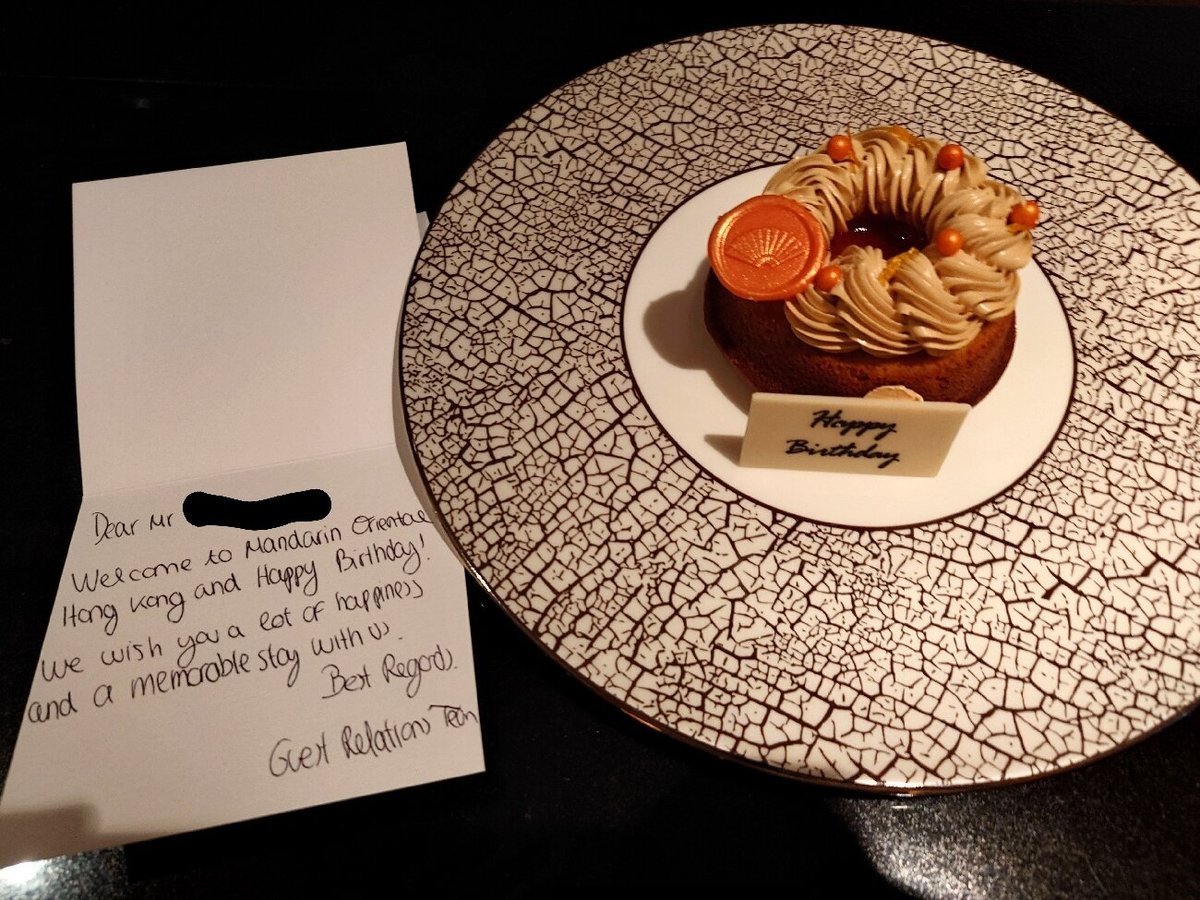 Dear Mr
Welcome to Mandarin Oriental
Hong Kong and Happy Birthday!
We wish you a lot of happiness
and a memorable stay with us.
Best Regards.
Guest Relations Team
Happy
Birthday